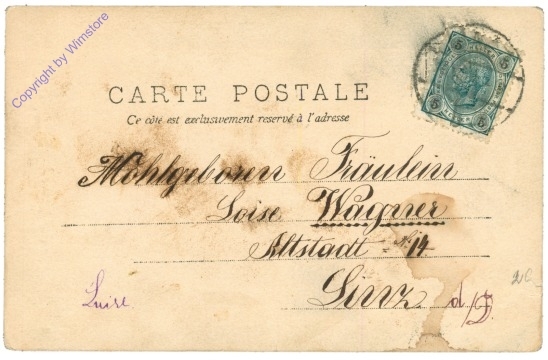 Copyright by Wimstore
CARTE POSTALE
Ce côté est exclusivement reservé à l'adresse
5 5
5 5
Wohlgeboren Fräulein
Loise Wagner
Altstadt No 14
Linz a/D.
Luise